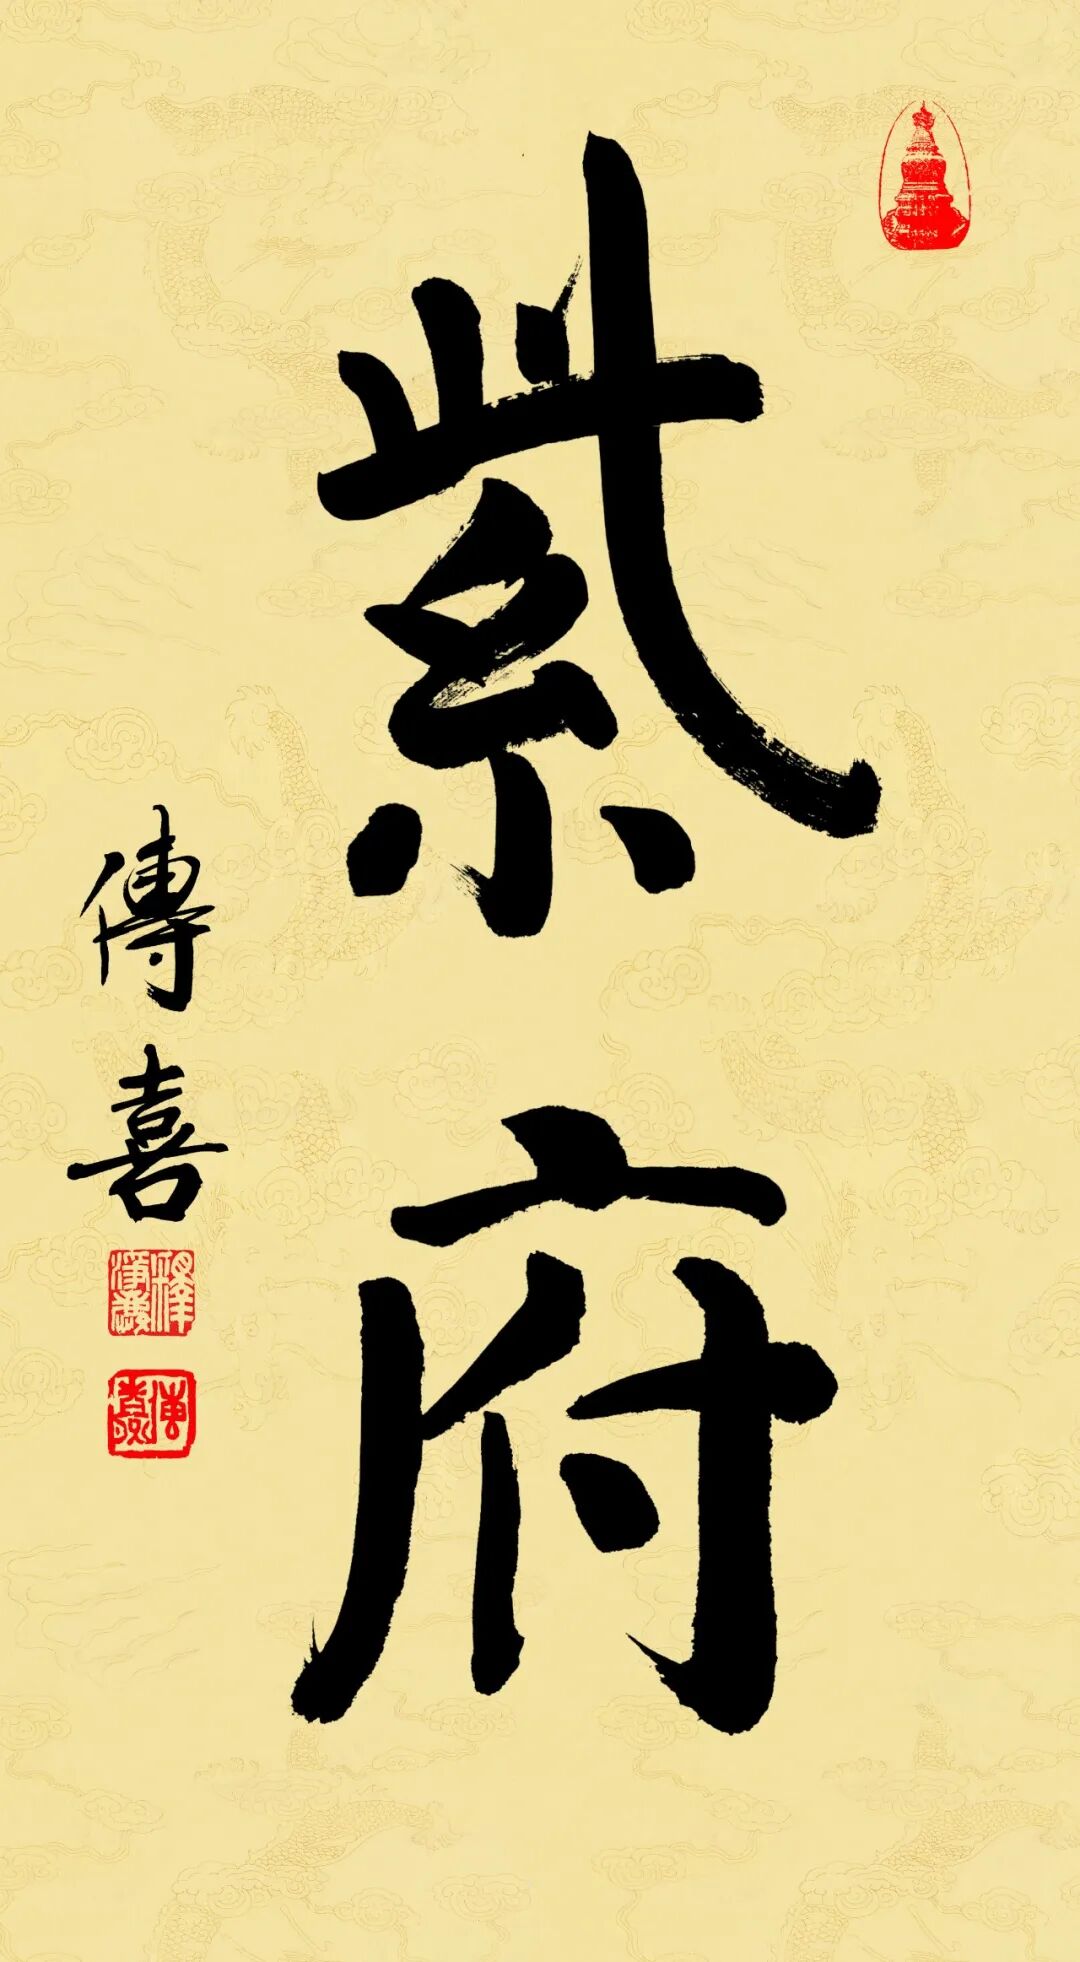 紫府
傳喜